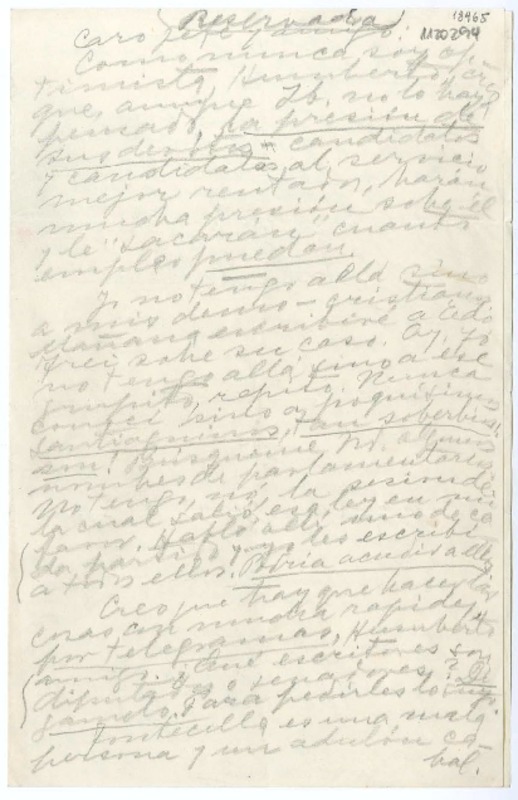 (Reservada)
18465
M20294
Caro jefe y amigo:
Como nunca soy op-
timista, Humberto, creo
que, aunque Ib. no lo haya
pensado, la presión de
sus devotos candidatos
y candidatas al servicio
mejor rentado, harán
mucha presión sobre él
y le "sacarán" cuanto
empleo puedan.
Yo no tengo allá sino
a mis demo-cristianos.
Mañana escribiré a Edo
Frei sobre su caso. Ay, yo
no tengo allá sino a ese
grupito, repito. Nunca
conocí sino a poquísimos
santiaguinos, tan soberbios
son! Búsqueme Ud. algunos
nombres de parlamentarios.
No tengo, no, la sesión de
la cual salió esa ley en mi
favor. Habló allí uno de ca-
da partido y yo les escribí
a todos ellos. Podría acudir a ellos
Creo que hay que hacer las
cosas con mucha rapidez,
por telegramas, Humberto
amigo. ¿Qué escritores son
diputados o senadores? Dí-
gamelo para pedirles lo suyo.
Fontecilla es una mala
persona y un adulón ca-
bal.